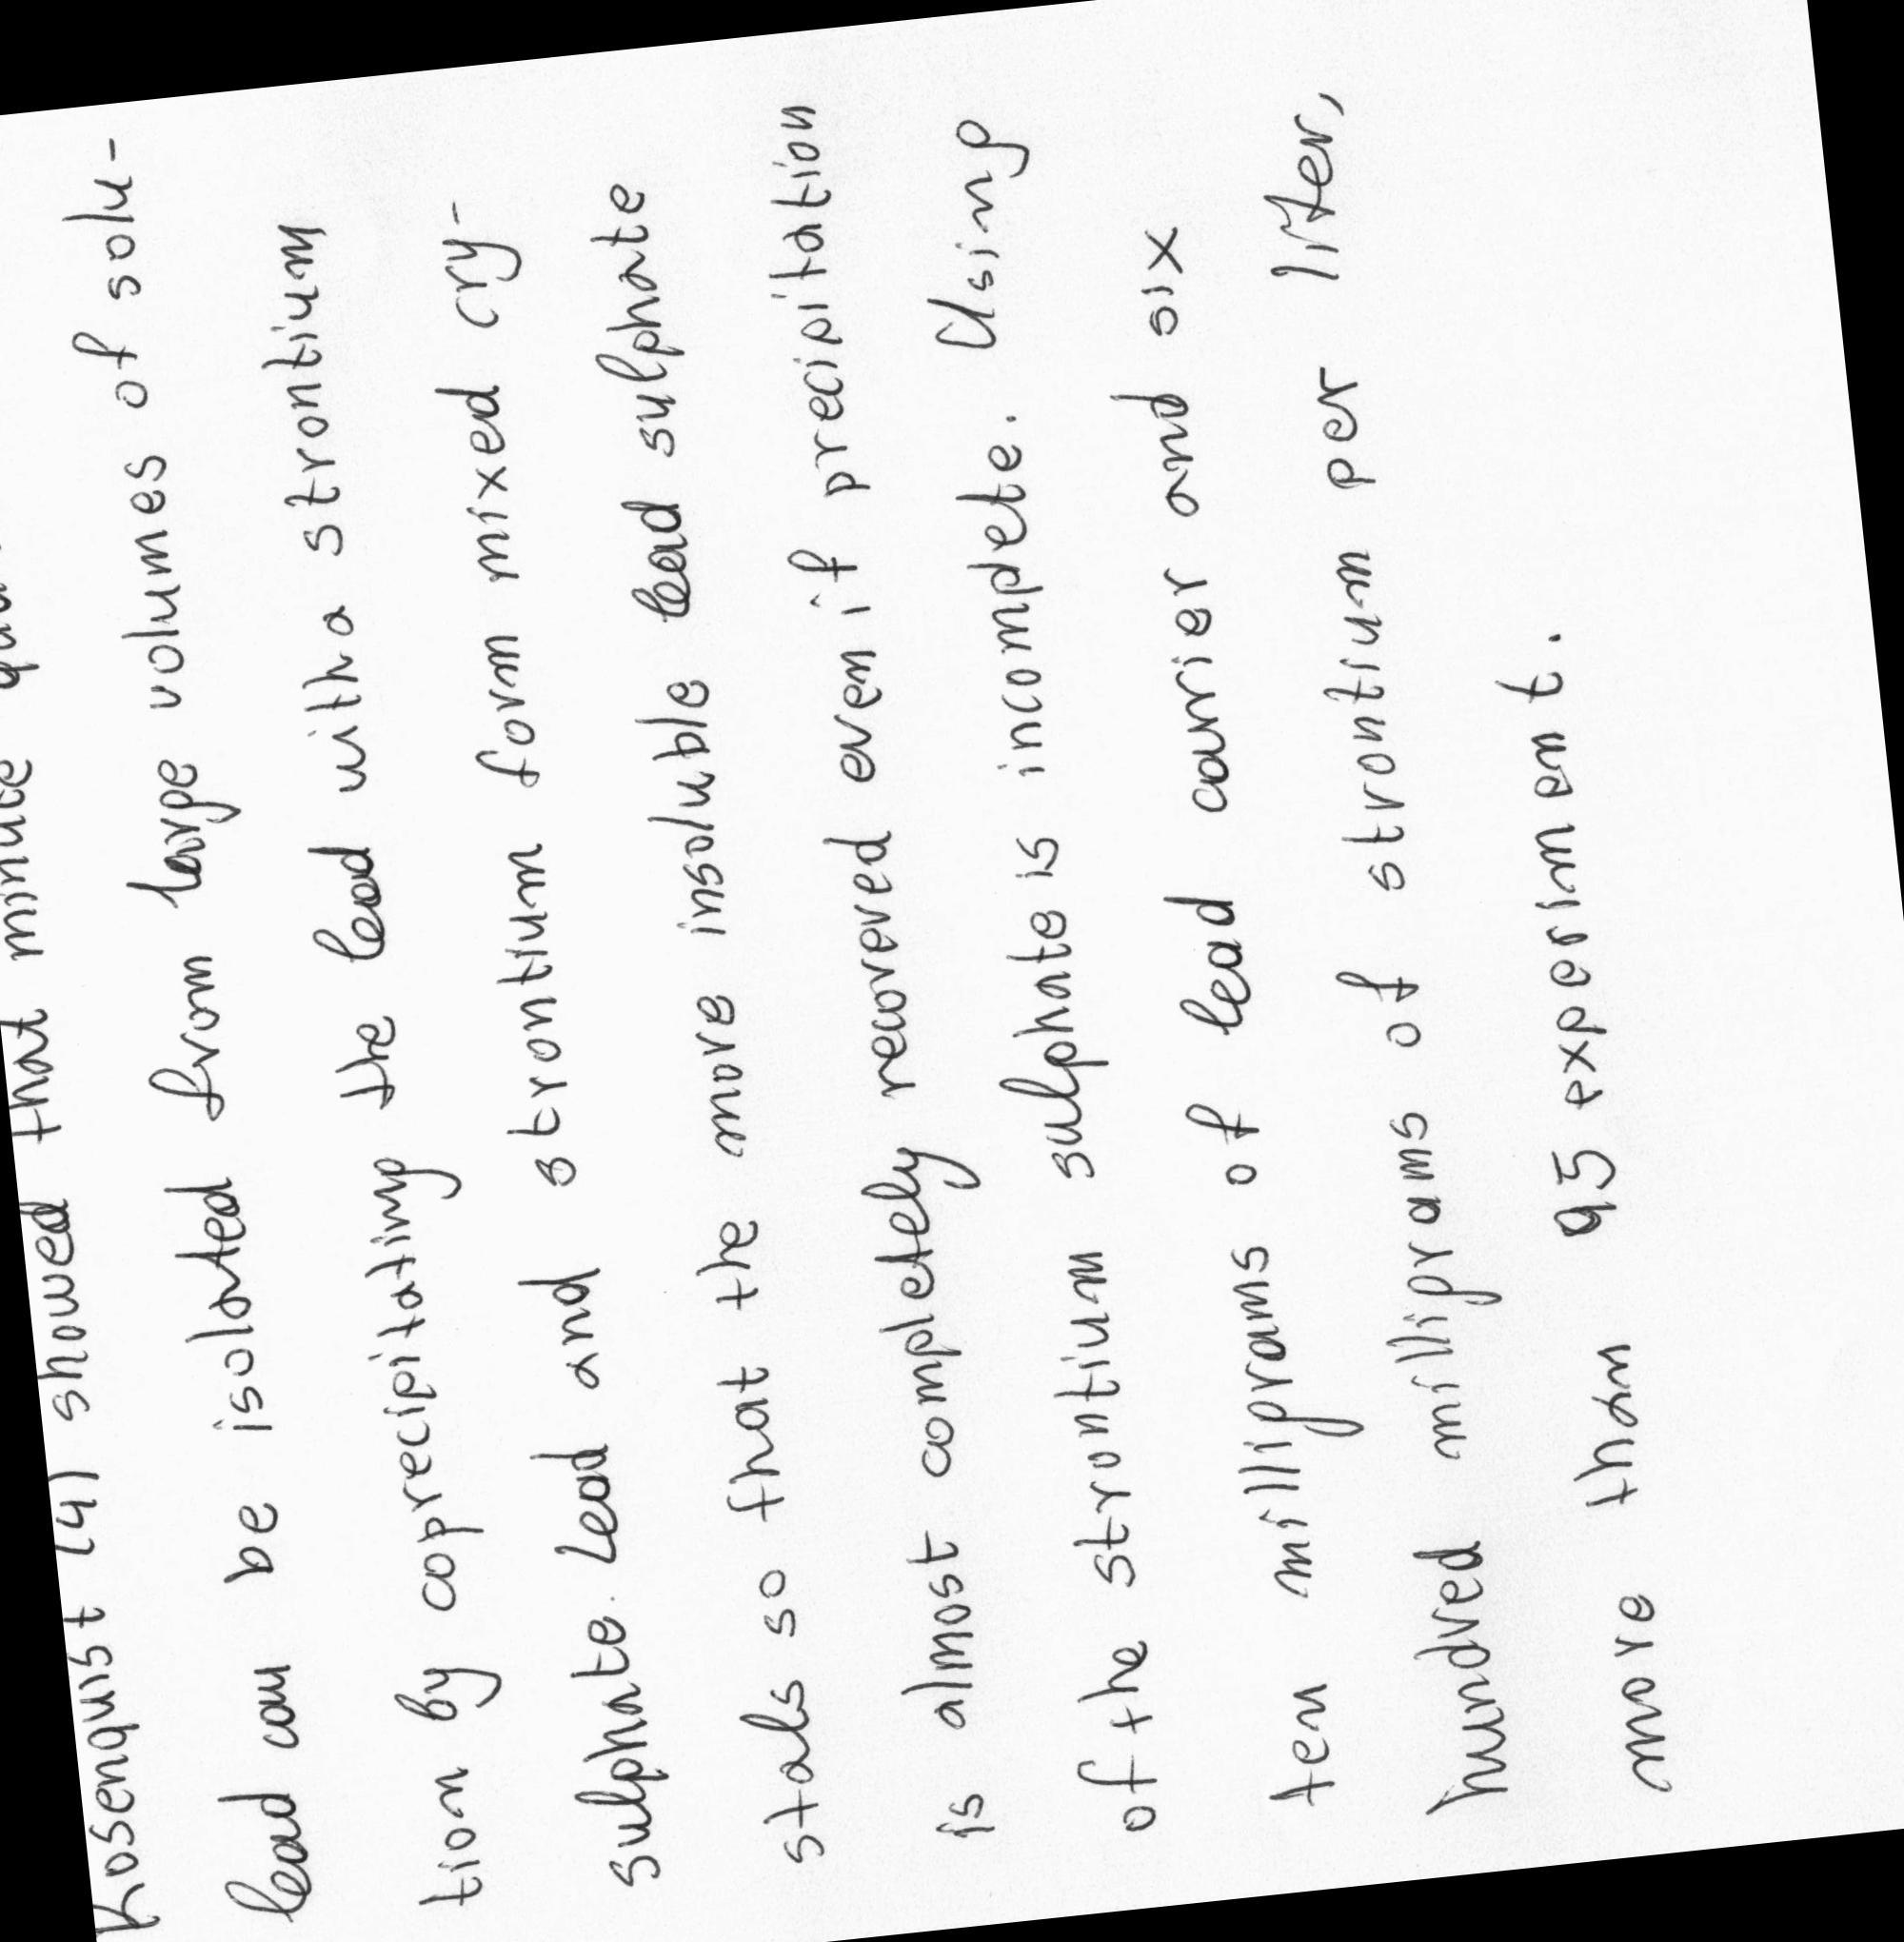 Rosenquist (4) showed that minute
lead can be isolated from large volumes of solu-
tion by coprecipitating the lead with a strontium
sulphate. Lead and strontium form mixed cry-
stals so that the more insoluble lead sulphate
is almost completely recovered even if precipitation
of the strontium sulphate is incomplete. Using
ten milligrams of lead carrier and six
hundred milligrams of strontium per liter,
more than 95 experiment.